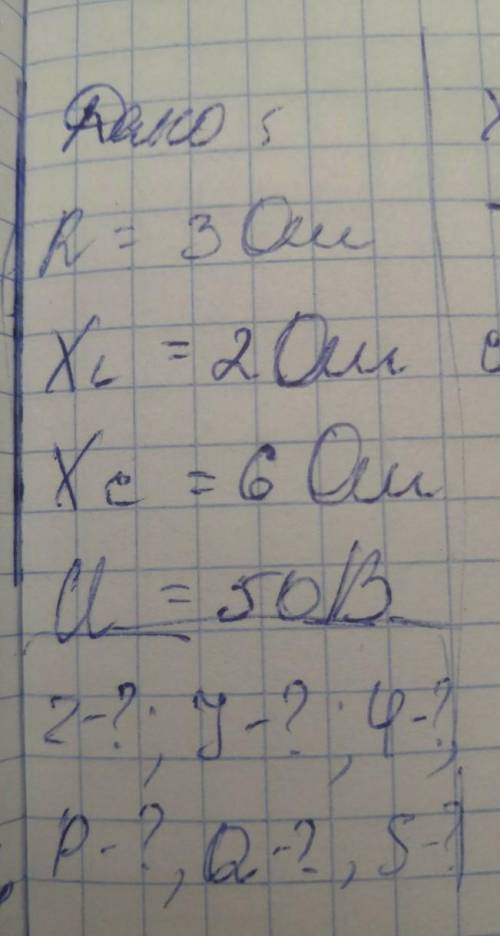 Дано:
R = 3 Ом
XL = 2 Ом
Xc = 6 Ом
U = 50 В
Z-?; J-?; φ-?,
P-?, Q-?, S-?